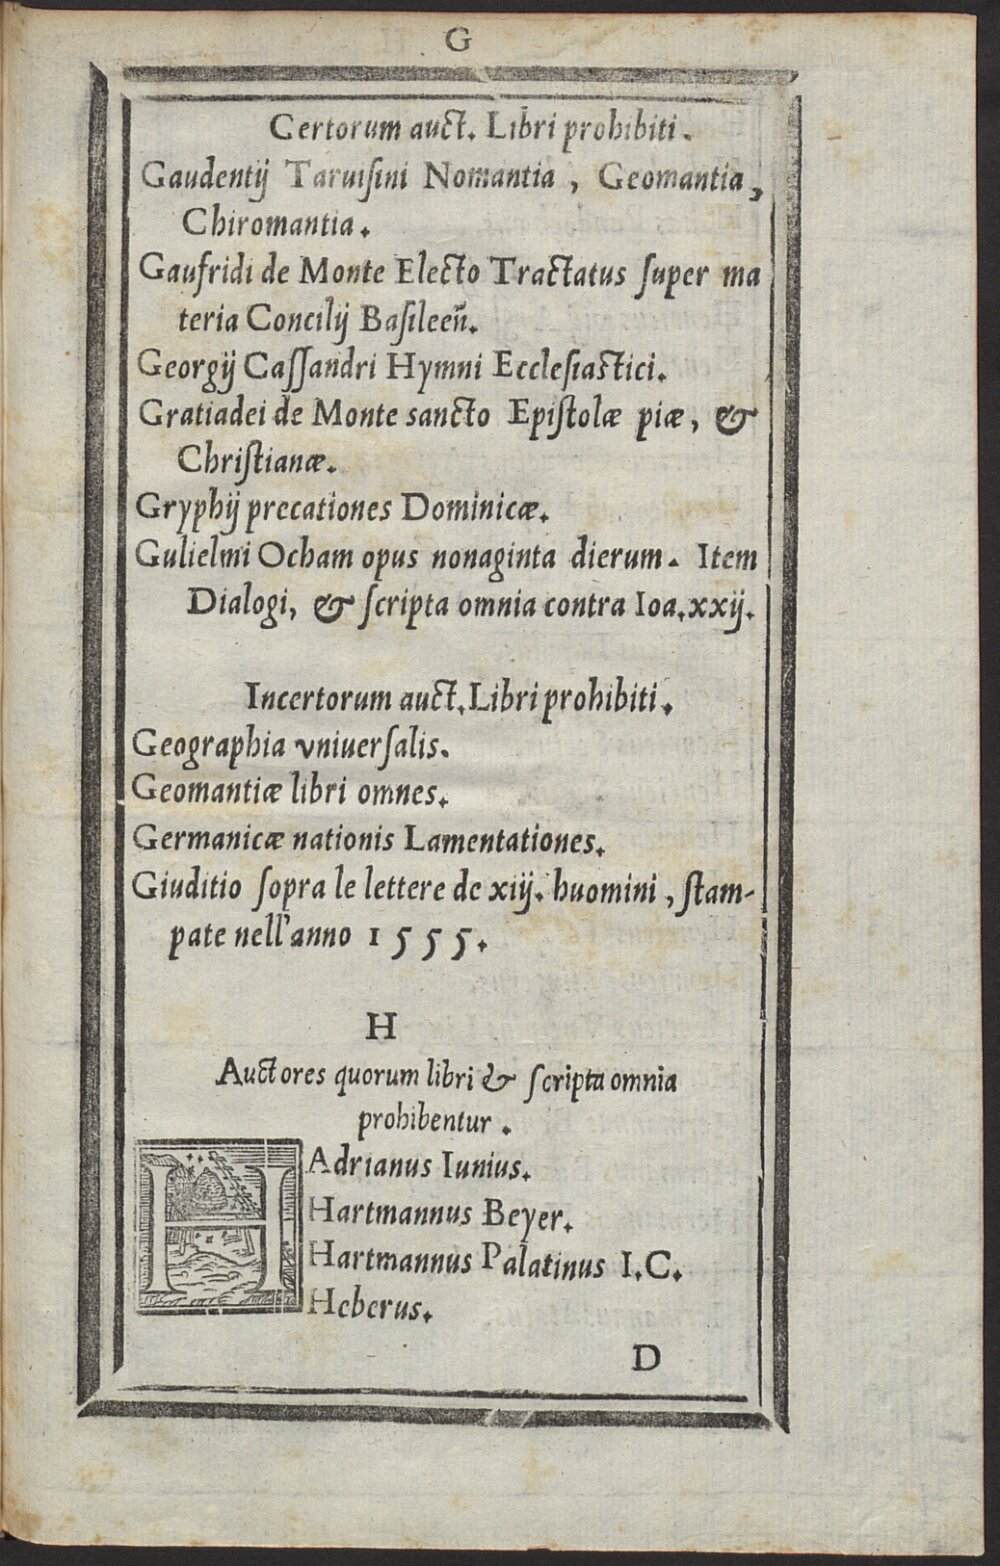 G
Certorum auct. Libri prohibiti.
Gaudentij Taruisini Nomantia, Geomantia,
Chiromantia.
Gaufridi de Monte Electo Tractatus super ma
teria Concilij Basileeñ.
Georgij Cassandri Hymni Ecclesiastici.
Gratiadei de Monte sancto Epistolæ piæ, &
Christianæ.
Gryphij precationes Dominicæ.
Gulielmi Ocham opus nonaginta dierum. Item
Dialogi, & scripta omnia contra Ioa.xxij.
Incertorum auct. Libri prohibiti.
Geographia vniuersalis.
Geomantiæ libri omnes.
Germanicæ nationis Lamentationes.
Giuditio sopra le lettere de xiij. huomini, stam-
pate nell'anno 1555.
H
Auctores quorum libri & scripta omnia
prohibentur.
HAdrianus Iunius.
Hartmannus Beyer.
Hartmannus Palatinus I.C.
Heberus.
D